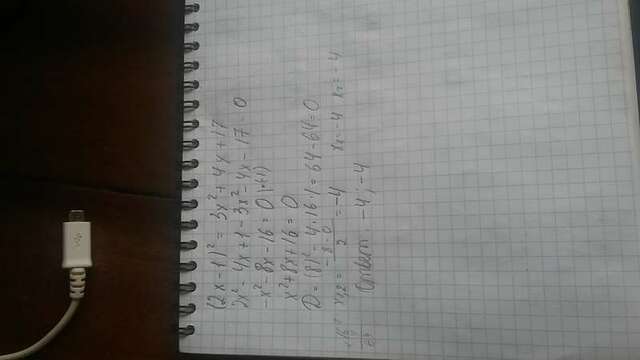 (2x-1)² = 3x² + 4x + 17
2x² - 4x + 1 - 3x² - 4x - 17 = 0
-x² - 8x - 16 = 0 |·(-1)
x² + 8x + 16 = 0
D = (8)² - 4·16·1 = 64 - 64 = 0
x₁,₂ = -8 ± 0 / 2 = -4 x₁ = -4 x₂ = 4
Ответ: -4; -4